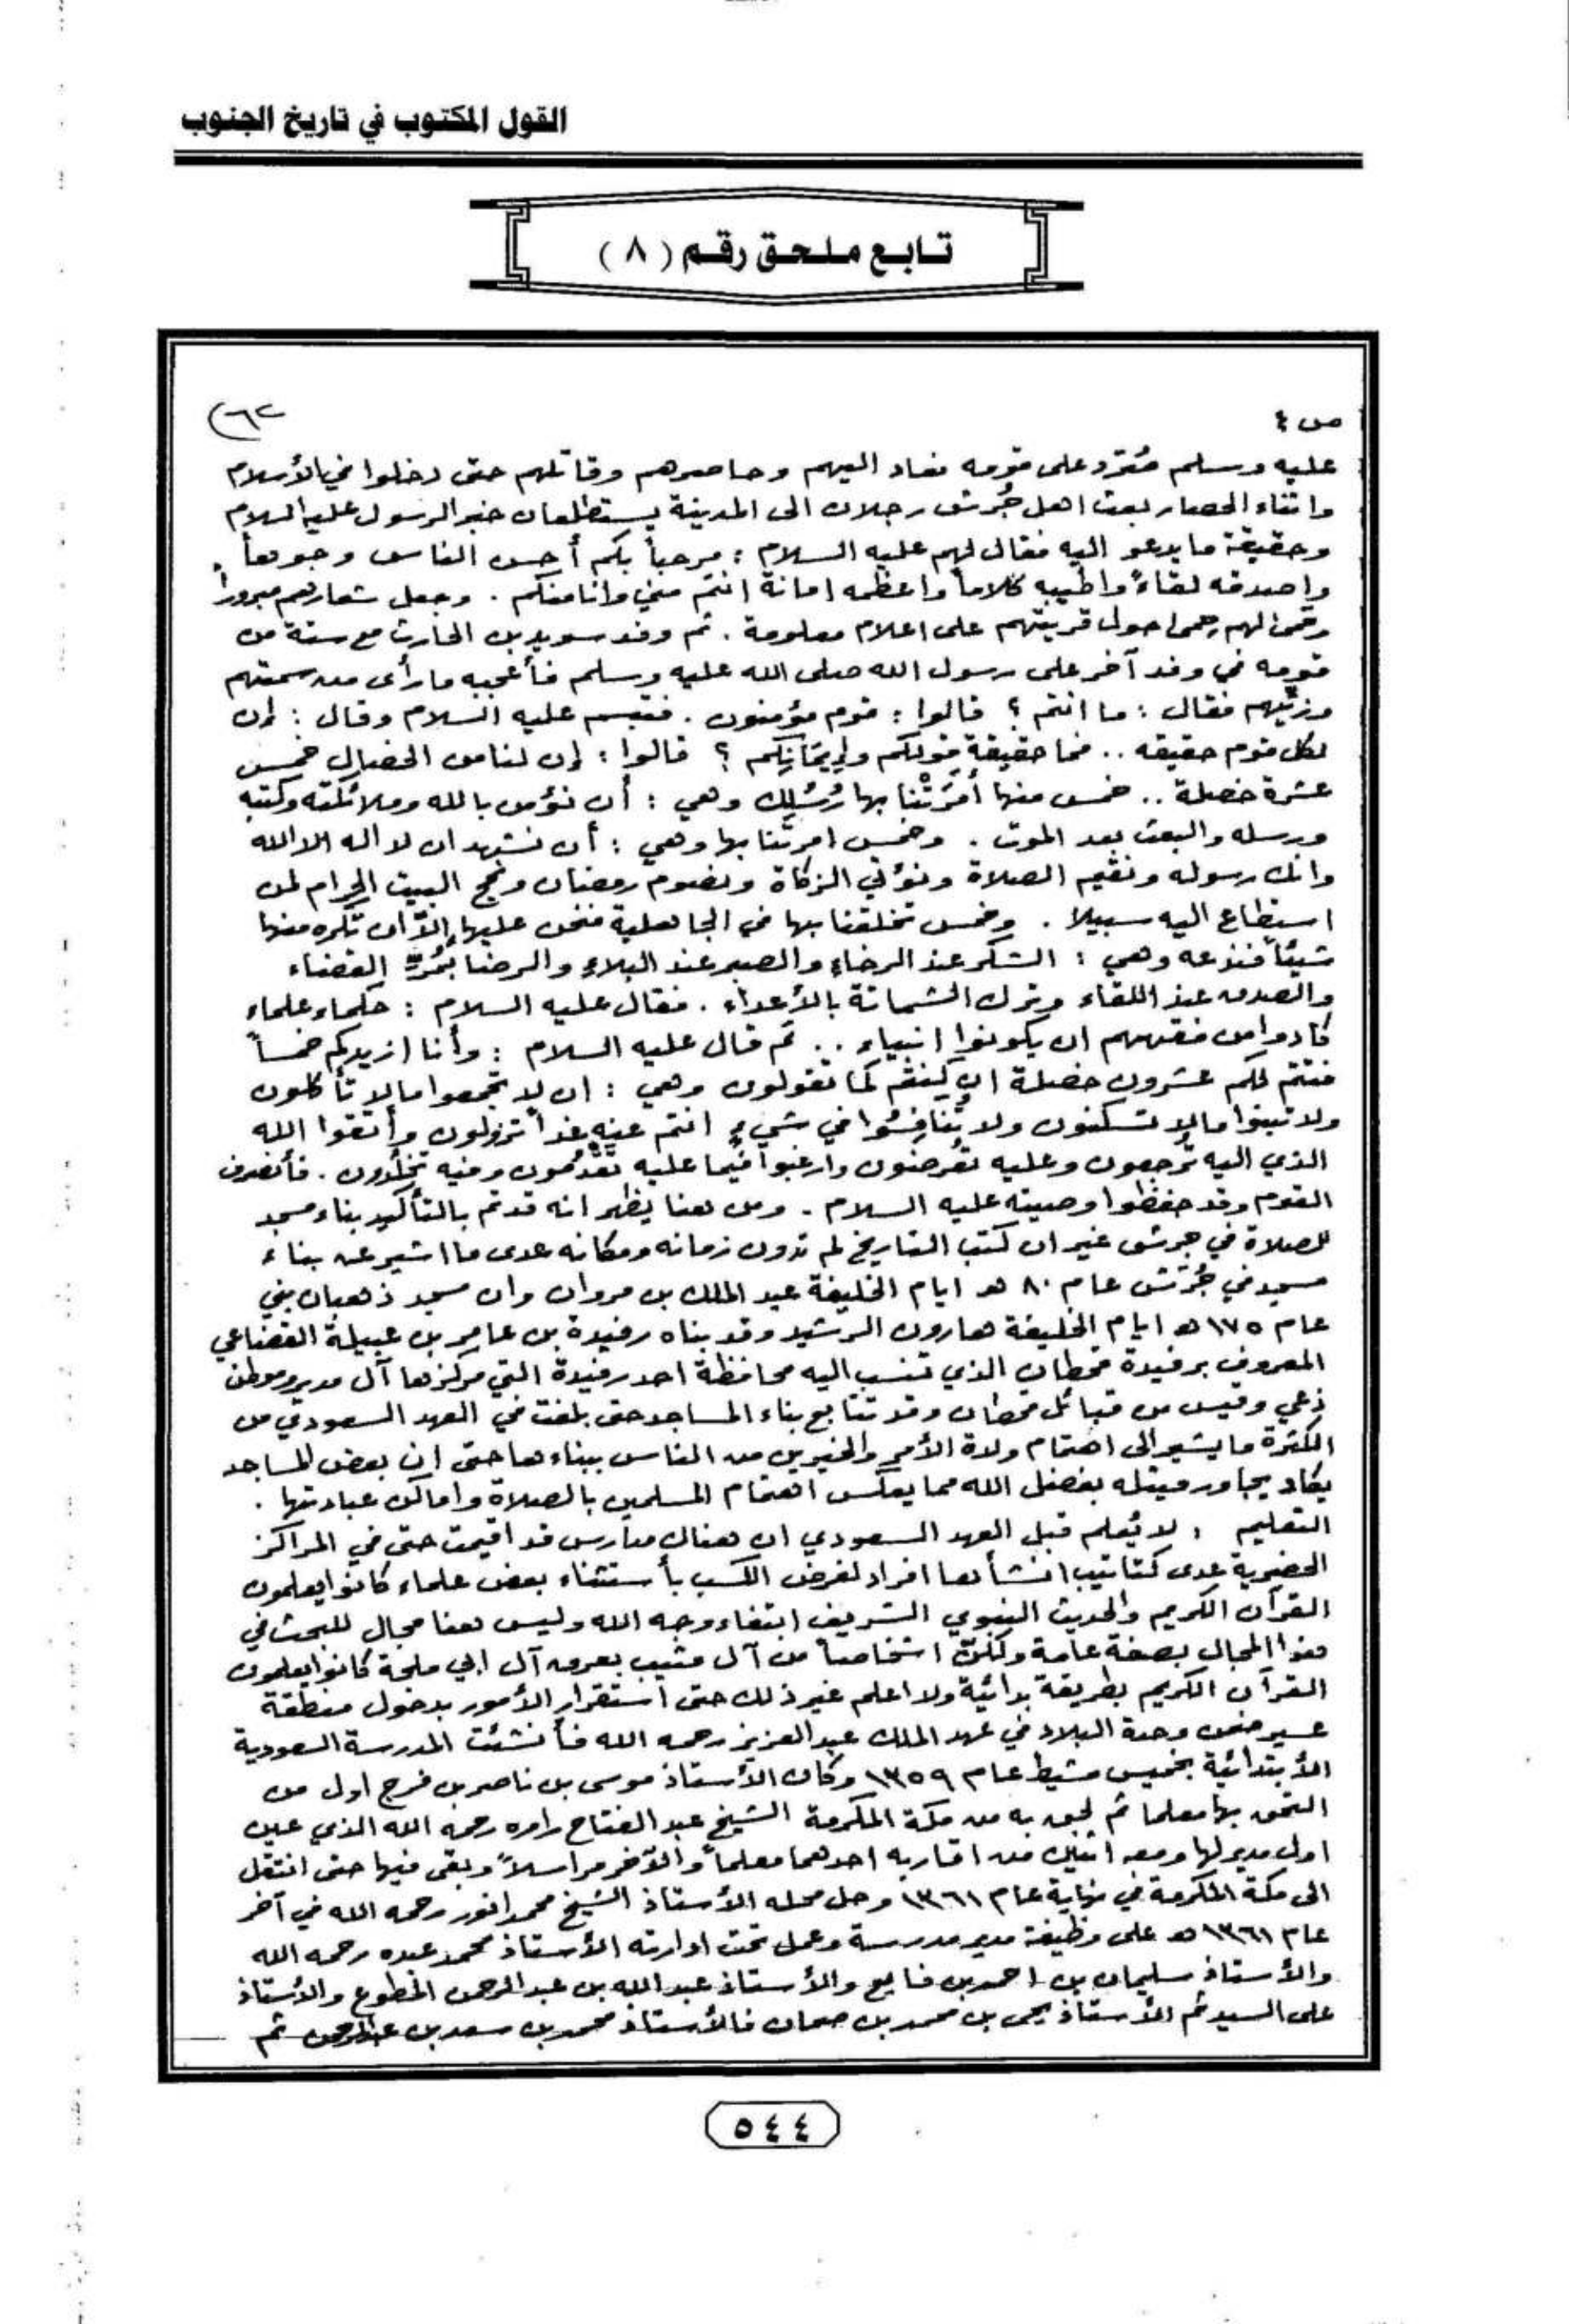 القول المكتوب في تاريخ الجنوب
تابع ملحق رقم ( ٨ )
ص ٤
٦٢)
عليه وسلم فتمرد على قومه فعاد اليهم وحاصرهم وقاتلهم حتى دخلوا في الأسلام
واثناء الحصار بعث اهل جُرش رجلان الى المدينة يستطلعان خبر الرسول عليه السلام
وحقيقة ما يدعو اليه فقال لهم عليه السلام : مرحباً بكم أحسن الناس وجوهاً
واصدقه لقاءً واطيبه كلاماً واعظمه امانة انتم مني وانا منكم . وجعل شعارهم مبروراً
وحمى لهم حمى حول قريتهم على اعلام معلومة . ثم وفد سويد بن الحارث مع ستة من
قومه في وفد آخر على رسول الله صلى الله عليه وسلم فأعجبه ما رأى من سمتهم
وزيّهم فقال : ما انتم ؟ قالوا : قوم مؤمنون . فتبسم عليه السلام وقال : إن
لكل قوم حقيقه .. فما حقيقة قولكم وإيمانكم ؟ قالوا : إن لنا من الخصال خمس
عشرة خصلة .. خمس منها أمَرَتْنا بها رُسُلك وهي : أن نؤمن بالله وملائكته وكتبه
ورسله والبعث بعد الموت . وخمس امرتنا بها وهي : أن نشهد ان لا اله الا الله
وانك رسوله ونقيم الصلاة ونؤتي الزكاة ونصوم رمضان ونحج البيت الحرام لمن
استطاع اليه سبيلا . وخمس تخلقنا بها في الجاهلية فنحن عليها إلاّ ان تكره منها
شيئاً فندعه وهي : الشكر عند الرخاء والصبر عند البلاء والرضا بمُرِّ القضاء
والصدق عند اللقاء وترك الشماتة بالأعداء . فقال عليه السلام : حكماء علماء
كادوا من فقههم ان يكونوا انبياء .. ثم قال عليه السلام : وأنا ازيدكم خمساً
فتتم لكم عشرون خصلة ان كنتم كما تقولون وهي : ان لا تجمعوا مالا تأكلون
ولا تبنوا مالا تسكنون ولا تنافسُوا في شيءٍ انتم عنه غداً تزولون وأتقوا الله
الذي اليه تُرجعون وعليه تُعرضون وارغبوا فيما عليه تَقْدُمون وفيه تخلُدون . فأنصرف
القوم وقد حفظوا وصيته عليه السلام . ومن هنا يظهر انه قد تم بالتأكيد بناء مسجد
للصلاة في جرش غير ان كتب التاريخ لم تدون زمانه ومكانه عدى ما اشير عن بناء
مسجد في جُرش عام ٨٠ هـ ايام الخليفة عبد الملك بن مروان وان مسجد ذهبان بني
عام ١٧٥ هـ ايام الخليفة هارون الرشيد وقد بناه رفيدة بن عامر بن عبيلة القضاعي
المعروف برفيدة قحطان الذي تنسب اليه محافظة احد رفيدة التي مركزها آل مدير وموطن
ذعي وقيس من قبائل قحطان وقد تتابع بناء المساجد حتى بلغت في العهد السعودي من
الكثرة ما يشير الى اهتمام ولاة الأمر والخيرين من الناس ببناءها حتى ان بعض المساجد
يكاد يجاور مثيله بفضل الله مما يعكس اهتمام المسلمين بالصلاة واماكن عبادتها .
التعليم : لا يُعلم قبل العهد السعودي ان هناك مدارس قد اقيمت حتى في المراكز
الحضرية عدى كتاتيب انشأها افراد لغرض الكسب بأستثناء بعض علماء كانوا يعلمون
القرآن الكريم والحديث النبوي الشريف ابتغاء وجه الله وليس هنا مجال للبحث في
هذا المجال بصفة عامة ولكنّ اشخاصاً من آل مثيب بعرق آل ابي ملحة كانوا يعلمون
القرآن الكريم بطريقة بدائية ولا اعلم غير ذلك حتى استقرار الأمور بدخول منطقة
عسير ضمن وحدة البلاد في عهد الملك عبد العزيز رحمه الله فأنشئت المدرسة السعودية
الأبتدائية بخميس مشيط عام ١٣٥٩ وكان الأستاذ موسى بن ناصر بن فرج اول من
التحق بها معلما ثم لحق به من مكة المكرمة الشيخ عبد الفتاح راوه رحمه الله الذي عين
اول مدير لها ومعه اثنين من اقاربه احدهما معلماً والآخر مراسلاً وبقى فيها حتى انتقل
الى مكة المكرمة في نهاية عام ١٣٦١ وحل محله الأستاذ الشيخ محمد انور رحمه الله في آخر
عام ١٣٦١ هـ على وظيفة مدير مدرسة وعمل تحت ادارته الأستاذ محمد عبده رحمه الله
والأستاذ سليمان بن احمد بن فايع والأستاذ عبد الله بن عبد الرحمن المطوع والأستاذ
على السيد ثم الأستاذ يحي بن محمد بن صمان فالأستاذ محمد بن سعد بن عبدالرحمن ثم
٥٤٤